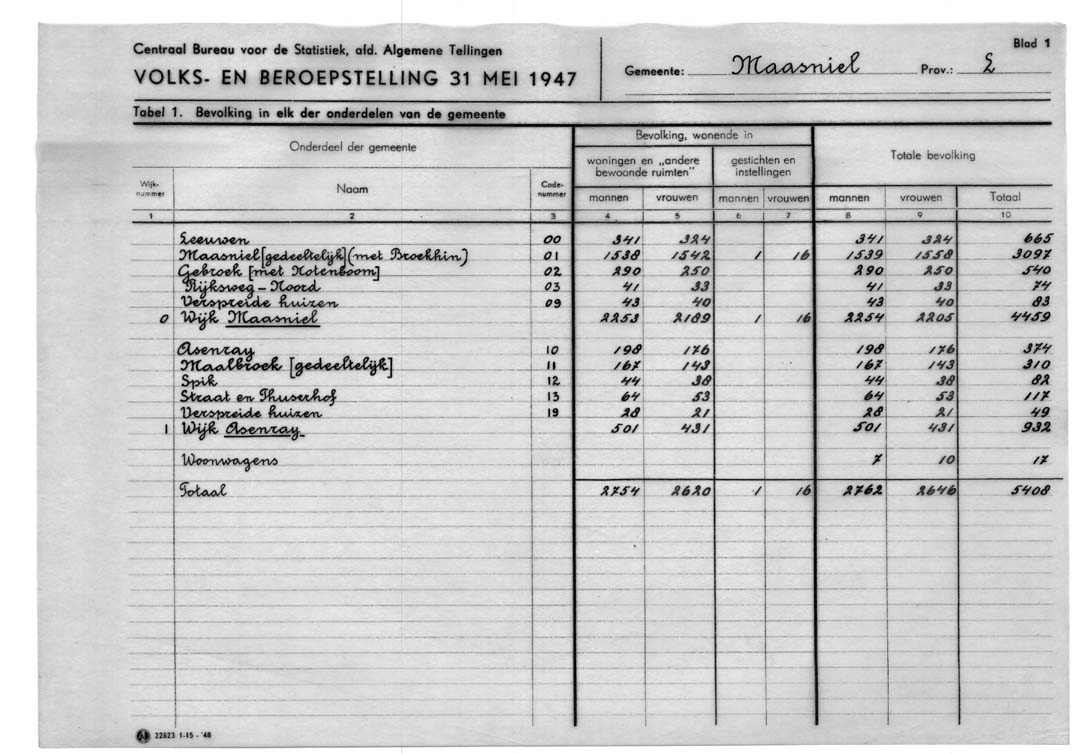 Centraal Bureau voor de Statistiek, afd. Algemene Tellingen
VOLKS- EN BEROEPSTELLING 31 MEI 1947
Gemeente: Maasniel Prov.: L
Blad 1
Tabel 1. Bevolking in elk der onderdelen van de gemeente
Onderdeel der gemeente Bevolking, wonende in Totale bevolking
woningen en „andere bewoonde ruimten” gestichten en instellingen
Wijk-nummer Naam Code-nummer mannen vrouwen mannen vrouwen mannen vrouwen Totaal
1 2 3 4 5 6 7 8 9 10
Leeuwen 00 341 324 341 324 665
Maasniel [gedeeltelijk] (met Broekhin) 01 1538 1542 1 16 1539 1558 3097
Gebroek [met Notenboom] 02 290 250 290 250 540
Rijksweg - Noord 03 41 33 41 33 74
Verspreide huizen 09 43 40 43 40 83
0 Wijk Maasniel 2253 2189 1 16 2254 2205 4459
Asenray 10 198 176 198 176 374
Maalbroek [gedeeltelijk] 11 167 143 167 143 310
Spik 12 44 38 44 38 82
Straat en Thuserhof 13 64 53 64 53 117
Verspreide huizen 19 28 21 28 21 49
1 Wijk Asenray 501 431 501 431 932
Woonwagens 7 10 17
Totaal 2754 2620 1 16 2762 2646 5408
22823 1-15 - '48